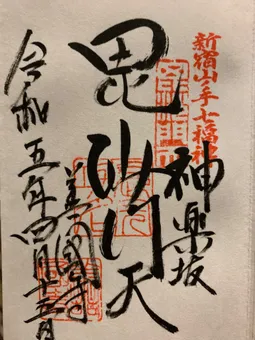 新宿山ノ手七福神
神楽坂
毘沙門天
善國寺
令和五年四月